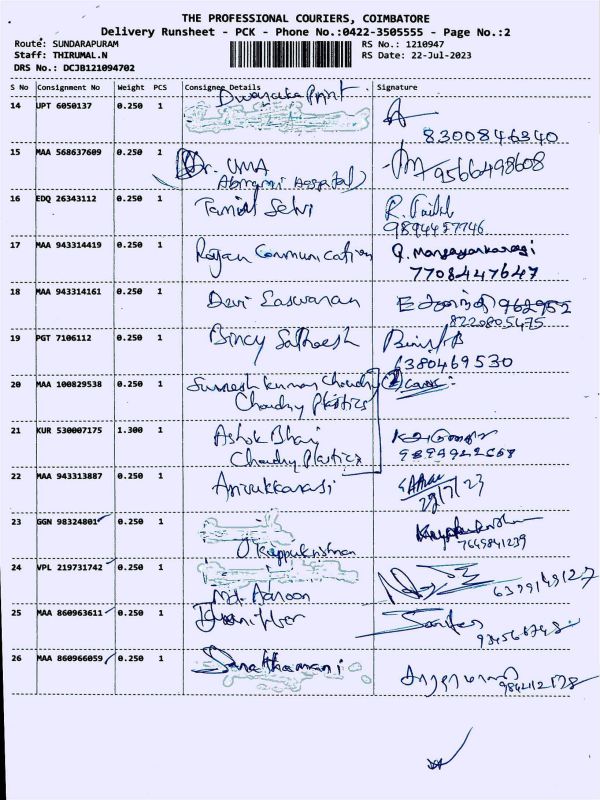 THE PROFESSIONAL COURIERS, COIMBATORE
Delivery Runsheet - PCK - Phone No.:0422-3505555 - Page No.:2
Route: SUNDARAPURAM RS No.: 1210947
Staff: THIRUMAL.N RS Date: 22-Jul-2023
DRS No.: DCJB121094702
S No Consignment No Weight PCS Consignee Details Signature
Dwaraka Print
14 UPT 6050137 0.250 1
8300846340
15 MAA 568637609 0.250 1 Dr. UMA 9566498608
Hospital)
16 EDQ 26343112 0.250 1 Tamil Selvi R.
9894457746
17 MAA 943314419 0.250 1 Rajan Communication Q. Mangayarkarasi
7708447647
18 MAA 943314161 0.250 1 Devi Easwaran
8220805475
19 PGT 7106112 0.250 1 Bincy Satheesh
6380469530
20 MAA 100829538 0.250 1 Sumesh Kumar Choudry
Choudry Plastics
21 KUR 530007175 1.300 1 Ashok Bhai
Choudry Plastics
22 MAA 943313887 0.250 1 Arivukkarasi
23 GGN 98324801 0.250 1
Kuppukrishnan 7649841239
24 VPL 219731742 0.250 1
Md. Aaroon
25 MAA 860963611 0.250 1
26 MAA 860966059 0.250 1 Sarathamani சாரதாமணி